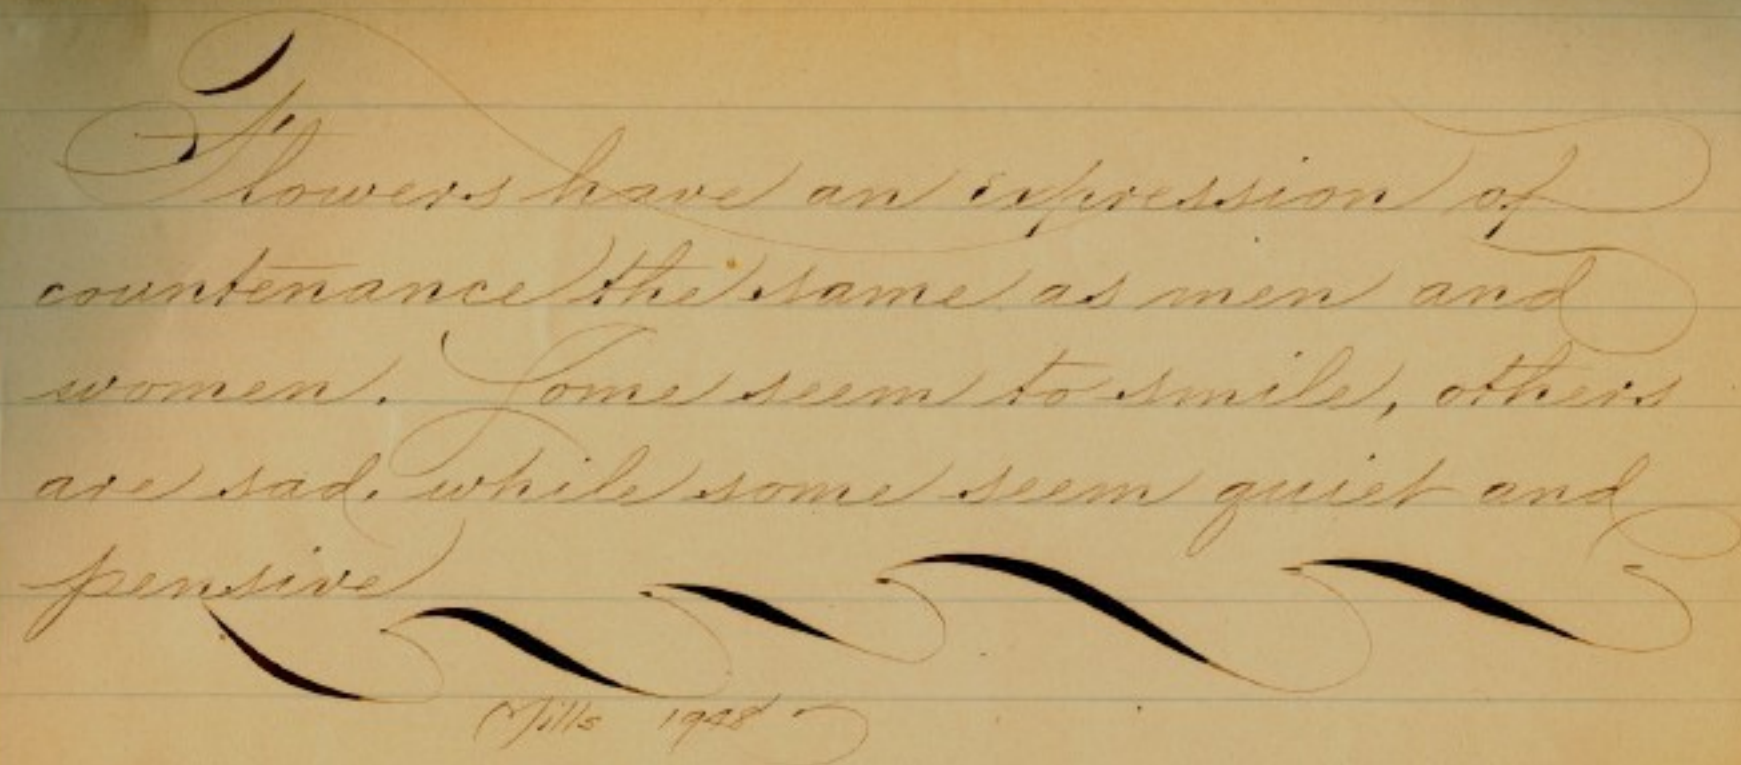 Flowers have an expression of
countenance the same as men and
women. Some seem to smile, others
are sad, while some seem quiet and
pensive
Mills 1948